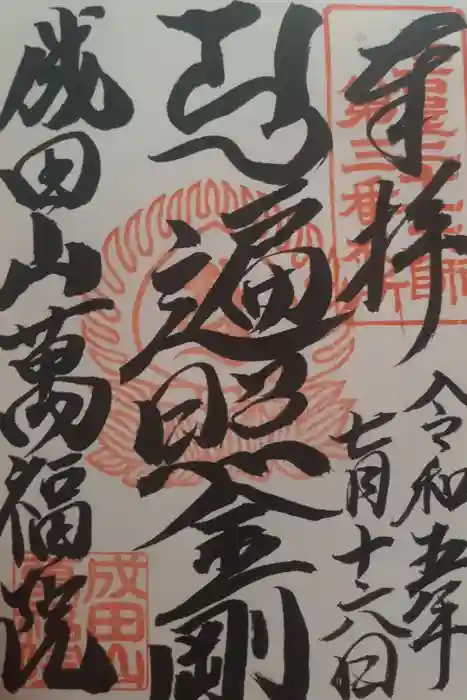 奉拝
令和五年
七月十六日
第三番札所
遍照金剛
成田山萬福院
成田山